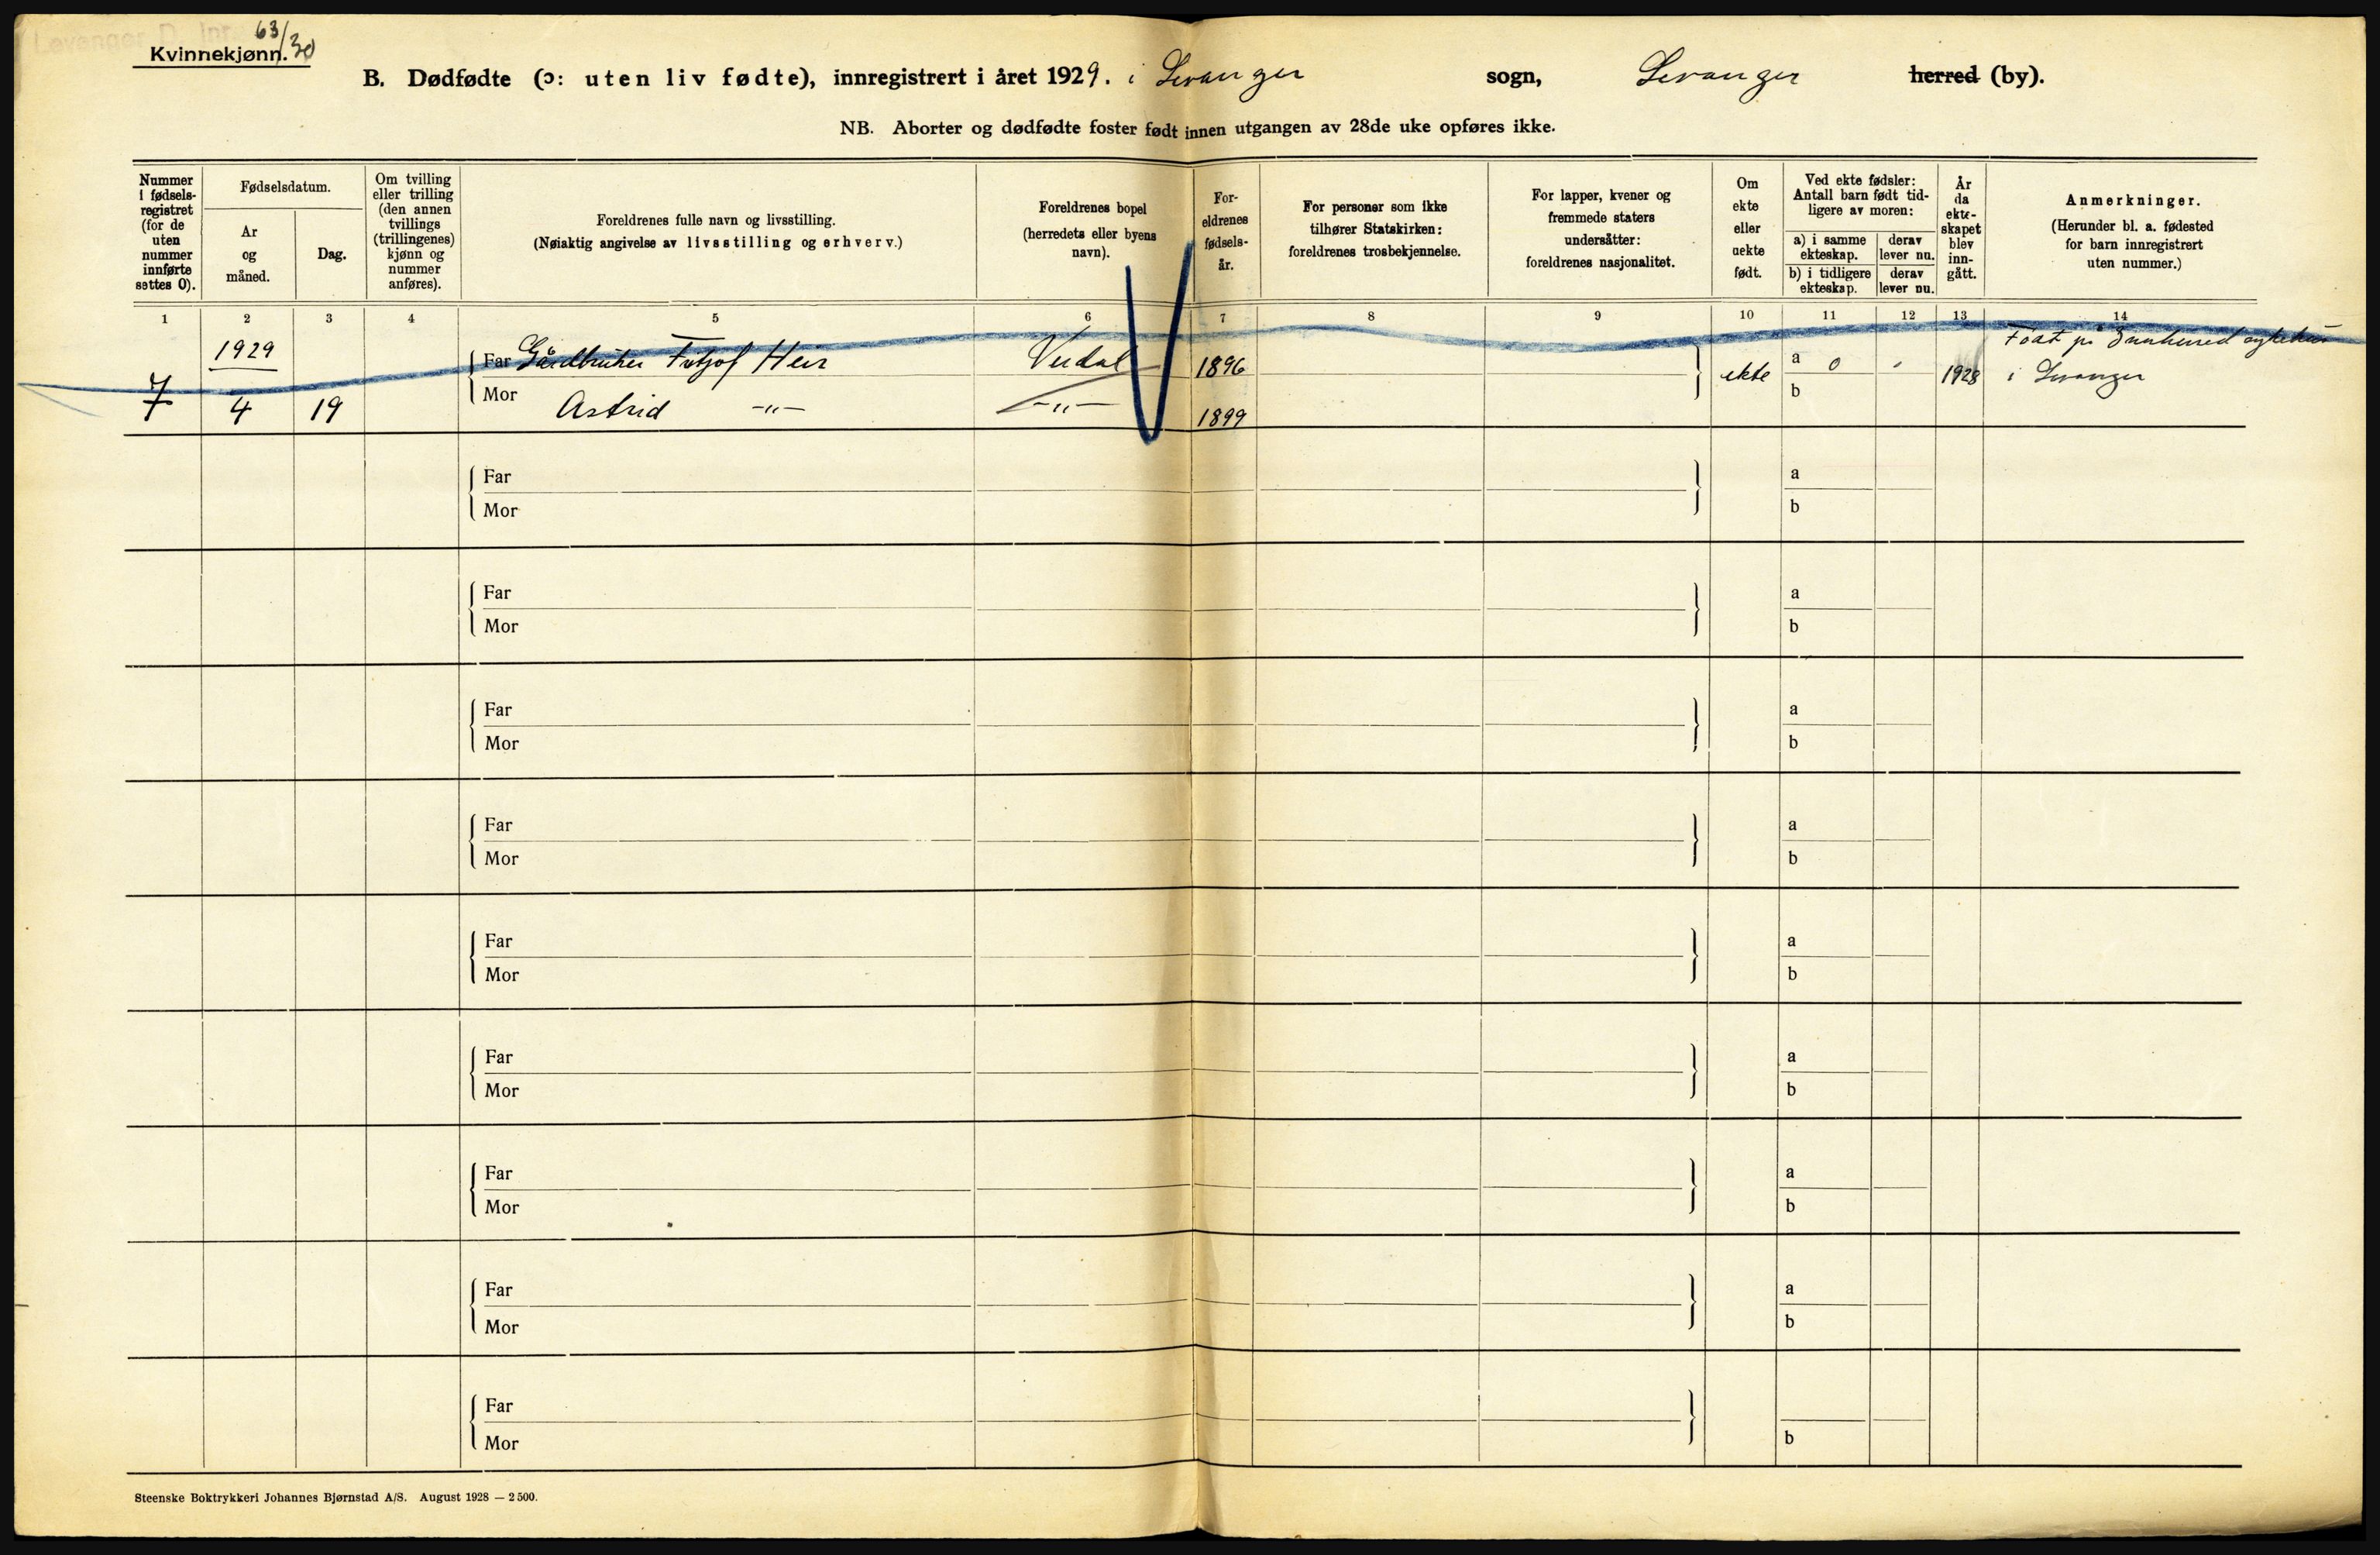 Levanger D. Jnr. 63/30
Kvinnekjønn.
B. Dødfødte (ɔ: uten liv fødte), innregistrert i året 1929. i Levanger sogn, Levanger herred (by).
NB. Aborter og dødfødte foster født innen utgangen av 28de uke opføres ikke.
Nummer i fødsels-registret (for de uten nummer innførte settes 0).
Fødselsdatum.
År og måned.
Dag.
Om tvilling eller trilling (den annen tvillings (trillingenes) kjønn og nummer anføres).
Foreldrenes fulle navn og livsstilling.
(Nøiaktig angivelse av livsstilling og erhverv.)
Foreldrenes bopel (herredets eller byens navn).
For-eldrenes fødsels-år.
For personer som ikke tilhører Statskirken: foreldrenes trosbekjennelse.
For lapper, kvener og fremmede staters undersåtter: foreldrenes nasjonalitet.
Om ekte eller uekte født.
Ved ekte fødsler: Antall barn født tid-ligere av moren:
a) i samme ekteskap. derav lever nu.
b) i tidligere ekteskap. derav lever nu.
År da ekte-skapet blev inn-gått.
Anmerkninger.
(Herunder bl. a. fødested for barn innregistrert uten nummer.)
1 2 3 4 5 6 7 8 9 10 11 12 13 14
1929 Far Gårdbruker Fritjof Heir Verdal 1896 ekte a 0 - 1928 Født på Innherred sykehus i Levanger
7 4 19 Mor Astrid -"- -"- 1899 b
Far a
Mor b
Far a
Mor b
Far a
Mor b
Far a
Mor b
Far a
Mor b
Far a
Mor b
Far a
Mor b
Far a
Mor b
Far
Mor b
Steenske Boktrykkeri Johannes Bjørnstad A/S. August 1928 — 2500.